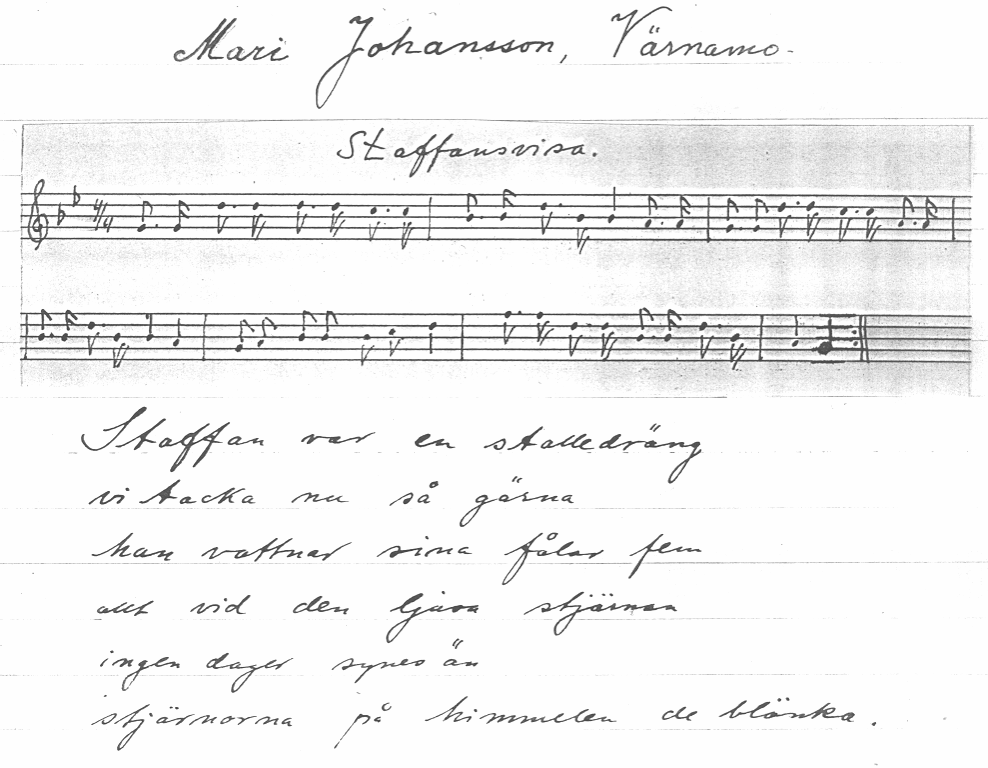 Mari Johansson, Värnamo.
Staffansvisa.
4/4
Staffan var en stalledräng
vi tacka nu så gärna
han vattnar sina fålar fem
allt vid den ljusa stjärnan
ingen dager synes än
stjärnorna på himmelen de blänka.